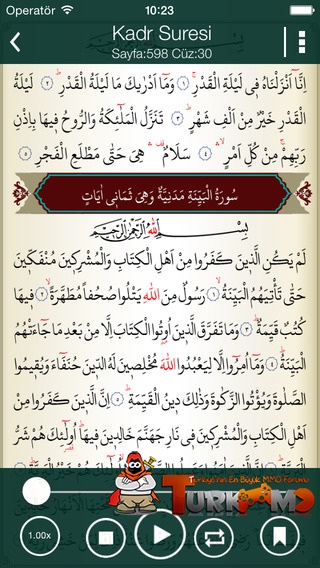 Operatör 10:23
Kadr Suresi
Sayfa:598 Cüz:30
اِنَّٓا اَنْزَلْنَاهُ فٖى لَيْلَةِ الْقَدْرِ ﴿١﴾ وَمَٓا اَدْرٰيكَ مَا لَيْلَةُ الْقَدْرِ ﴿٢﴾ لَيْلَةُ
الْقَدْرِ خَيْرٌ مِنْ اَلْفِ شَهْرٍ ﴿٣﴾ تَنَزَّلُ الْمَلٰٓئِكَةُ وَالرُّوحُ فٖيهَا بِاِذْنِ
رَبِّهِمْ مِنْ كُلِّ اَمْرٍ ﴿٤﴾ سَلَامٌ هِىَ حَتّٰى مَطْلَعِ الْفَجْرِ ﴿٥﴾
سُورَةُ الْبَيِّنَةِ مَدَنِيَّةٌ وَهِىَ ثَمَانٖى اٰيَاتٍ
بِسْمِ اللّٰهِ الرَّحْمٰنِ الرَّحٖيمِ
لَمْ يَكُنِ الَّذٖينَ كَفَرُوا مِنْ اَهْلِ الْكِتَابِ وَالْمُشْرِكٖينَ مُنْفَكّٖينَ
حَتّٰى تَأْتِيَهُمُ الْبَيِّنَةُ ﴿١﴾ رَسُولٌ مِنَ اللّٰهِ يَتْلُوا صُحُفاً مُطَهَّرَةً ﴿٢﴾ فٖيهَا
كُتُبٌ قَيِّمَةٌ ﴿٣﴾ وَمَا تَفَرَّقَ الَّذٖينَ اُوتُوا الْكِتَابَ اِلَّا مِنْ بَعْدِ مَا جَٓاءَتْهُمُ
الْبَيِّنَةُ ﴿٤﴾ وَمَٓا اُمِرُٓوا اِلَّا لِيَعْبُدُوا اللّٰهَ مُخْلِصٖينَ لَهُ الدّٖينَ حُنَفَٓاءَ وَيُقٖيمُوا
الصَّلٰوةَ وَيُؤْتُوا الزَّكٰوةَ وَذٰلِكَ دٖينُ الْقَيِّمَةِ ﴿٥﴾ اِنَّ الَّذٖينَ كَفَرُوا مِنْ
اَهْلِ الْكِتَابِ وَالْمُشْرِكٖينَ فٖى نَارِ جَهَنَّمَ خَالِدٖينَ فٖيهَا اُولٰٓئِكَ هُمْ شَرُّ
Türkiye'nin En Büyük MMO Forumu
TURKMMO
1.00x